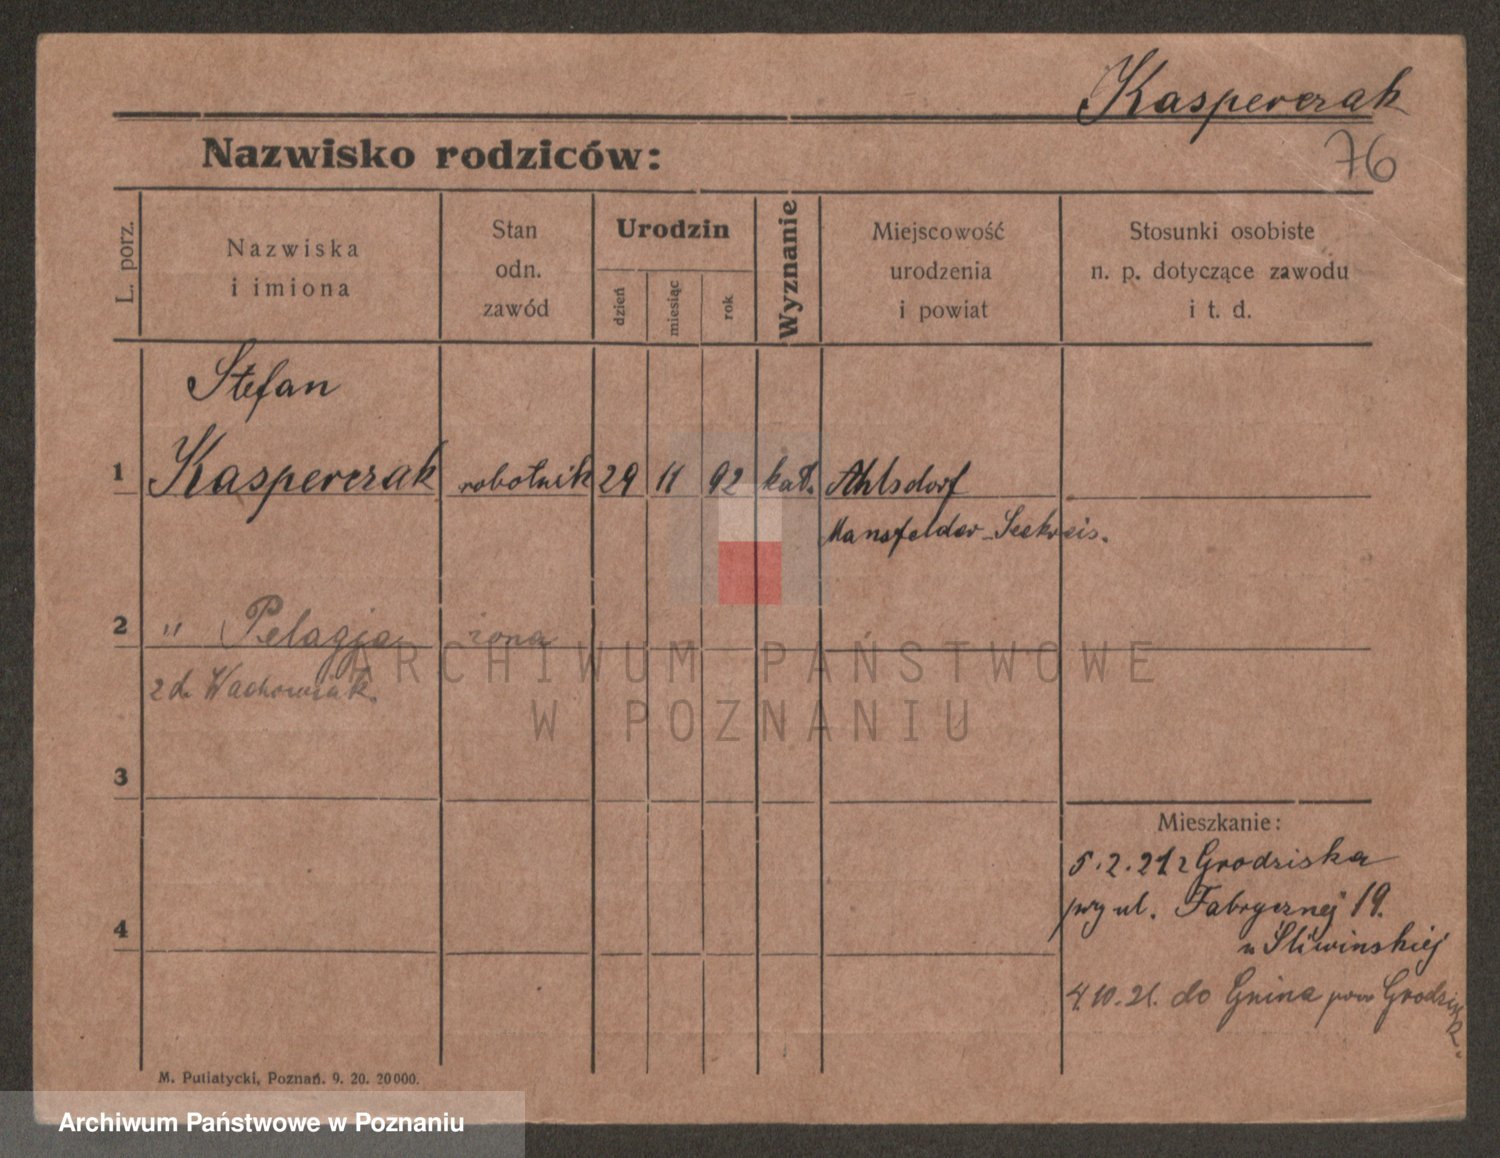 Kasperczak
76
Nazwisko rodziców:
L. porz.
Nazwiska
i imiona
Stan
odn.
zawód
Urodzin
dzień
miesiąc
rok
Wyznanie
Miejscowość
urodzenia
i powiat
Stosunki osobiste
n. p. dotyczące zawodu
i t. d.
Stefan
1 Kasperczak robotnik 29 11 92 kat. Ahlsdorf
Mansfelder-Seekreis.
2 " Pelagja żona
z d. Wachowiak.
ARCHIWUM PAŃSTWOWE
W POZNANIU
3
Mieszkanie:
5.2.21 z Grodziska
przy ul. Fabrycznej 19.
4
u Śliwinskiej
4.10.21. do Gnina pow Grodzisk.
M. Putiatycki, Poznań. 9. 20. 20000.
Archiwum Państwowe w Poznaniu